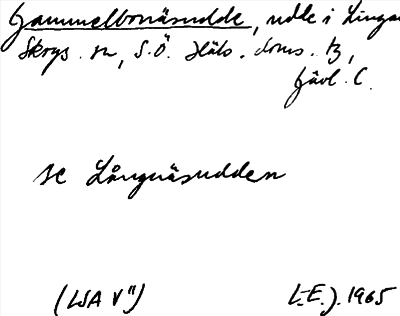 Gammelbonäsudde, udde i Lingan
Skogs. sn, S.Ö. Häls. doms. tz,
Gävl. C.
se Långnäsudden
(LSA V")
L-E.J. 1965